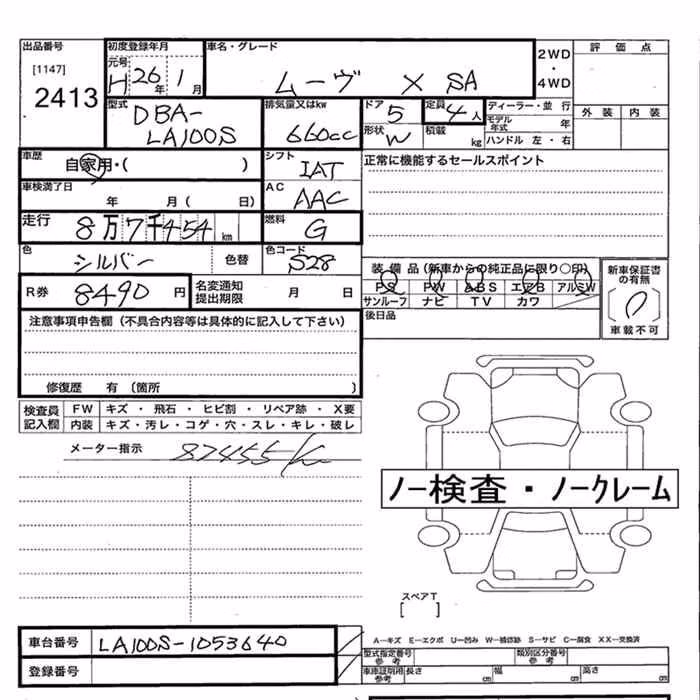 出品番号
[1147]
2413
初度登録年月
元号
H 26年 1月
車名・グレード
ムーヴ X SA
2WD
・
4WD
評価点
外装 内装
型式
DBA-
LA100S
排気量又はkw
660cc
ドア
5
形状
W
定員
4人
積載
kg
ディーラー・並行
モデル年式 年
ハンドル 左・右
車歴
自家用・( )
シフト
IAT
正常に機能するセールスポイント
車検満了日
年 月 ( 日)
AC
AAC
走行
8万7千454km
燃料
G
色
シルバー
色替
色コード
S28
装備品(新車からの純正品に限り○印)
PS PW ABS エアB アルミW
サンルーフ ナビ TV カワ
新車保証書
の有無
( )
車載不可
R券
8490円
名変通知
提出期限
月 日
後日品
注意事項申告欄(不具合内容等は具体的に記入して下さい)
修復歴 有(箇所 )
検査員
記入欄
FW キズ・飛石・ヒビ割・リペア跡・X要
内装 キズ・汚レ・コゲ・穴・スレ・キレ・破レ
メーター指示 87455km
ノー検査・ノークレーム
スペアT
[ ]
車台番号 LA100S-1053640
登録番号
A-キズ E-エクボ U-凹み W-補修跡 S-サビ C-腐食 XX-交換済
型式指定番号
参考
類別区分番号
参考
車庫証明用
参考
長さ cm 幅 cm 高さ cm